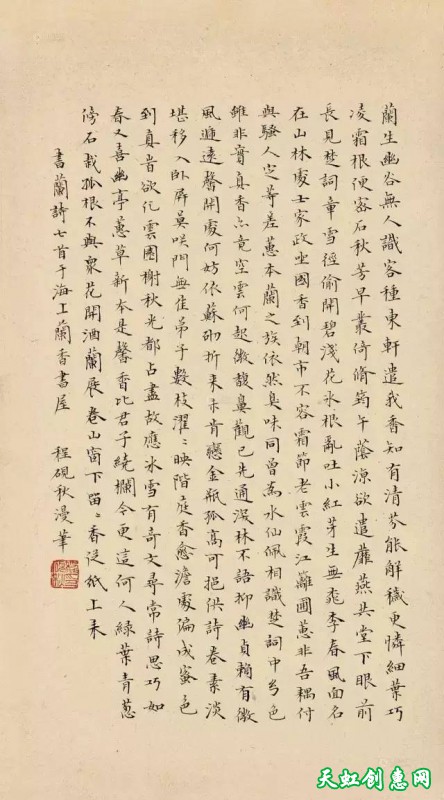 蘭生幽谷無人識客種東軒遺我香知有清芬能解穢更憐細葉巧
凌霜根便密石秋芳早叢倚脩筠午蔭涼欲遣蘼蕪共堂下眼前
長見楚詞章雪徑偷開碧淺花氷根亂吐小紅芽生無桃李春風面名
在山林處士家政坐國香到朝市不容霜節老雲霞江蘺圃蕙非吾耦付
與騷人定等差蕙本蘭之族依然臭味同曾為水仙佩相識楚詞中色
雖非實真香亦竟空雲何起微馥鼻觀已先通深林不語抑幽貞賴有微
風遞遠馨開處何妨依蘇砌折来未肯戀金瓶孤高可挹供詩卷素淡
堪移入卧屏莫咲門無佳弟子數枝濯〻映階庭香愈澹處偏成蜜色
到真香欲化雲園榭秋光都占盡故應氷雪有奇文尋常詩思巧如
春又喜幽亭蕙草新本是馨香比君子繞欄今更這何人緑葉青葱
傍石栽孤根不與衆花開酒蘭展卷山窗下〻香従紙上来
書蘭詩七首于海上蘭香書屋 程硯秋漫筆
天虹创惠网